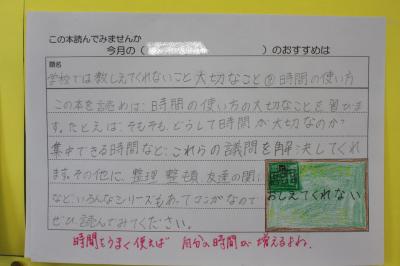 この本読んでみませんか
今月の( )のおすすめは
題名
学校では教しえてくれないこと大切なこと 時間の使い方
この本を読めば、時間の使い方の大切なことを学びま
す。たとえば、そもそも、どうして時間が大切なのか?
集中できる時間など、これらの議問を解決してくれ
ます。その他に、整理整頓、友達の関
など、いろんなシリーズもあってマンガなので
ぜひ読んでみてください。
おしえてくれない
時間をうまく使えば 自分の時間が増えるよね。